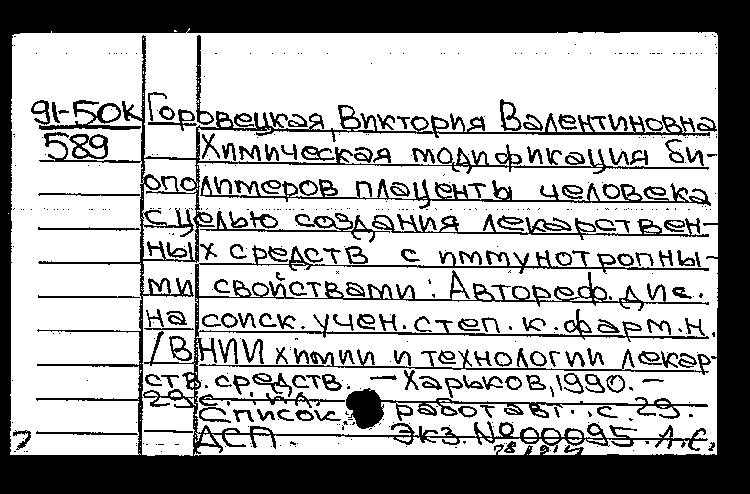 91-50к Горовецкая, Виктория Валентиновна
589 Химическая модификация би-
ополимеров плаценты человека
с целью создания лекарствен-
ных средств с иммунотропны-
ми свойствами: Автореф. дис.
на соиск. учен. степ. к. фарм. н.
/ВНИИ химии и технологии лекар-
ств. средств. — Харьков, 1990. —
29 с.
Список работ авт.: с. 29.
ДСП. Экз. № 00095.